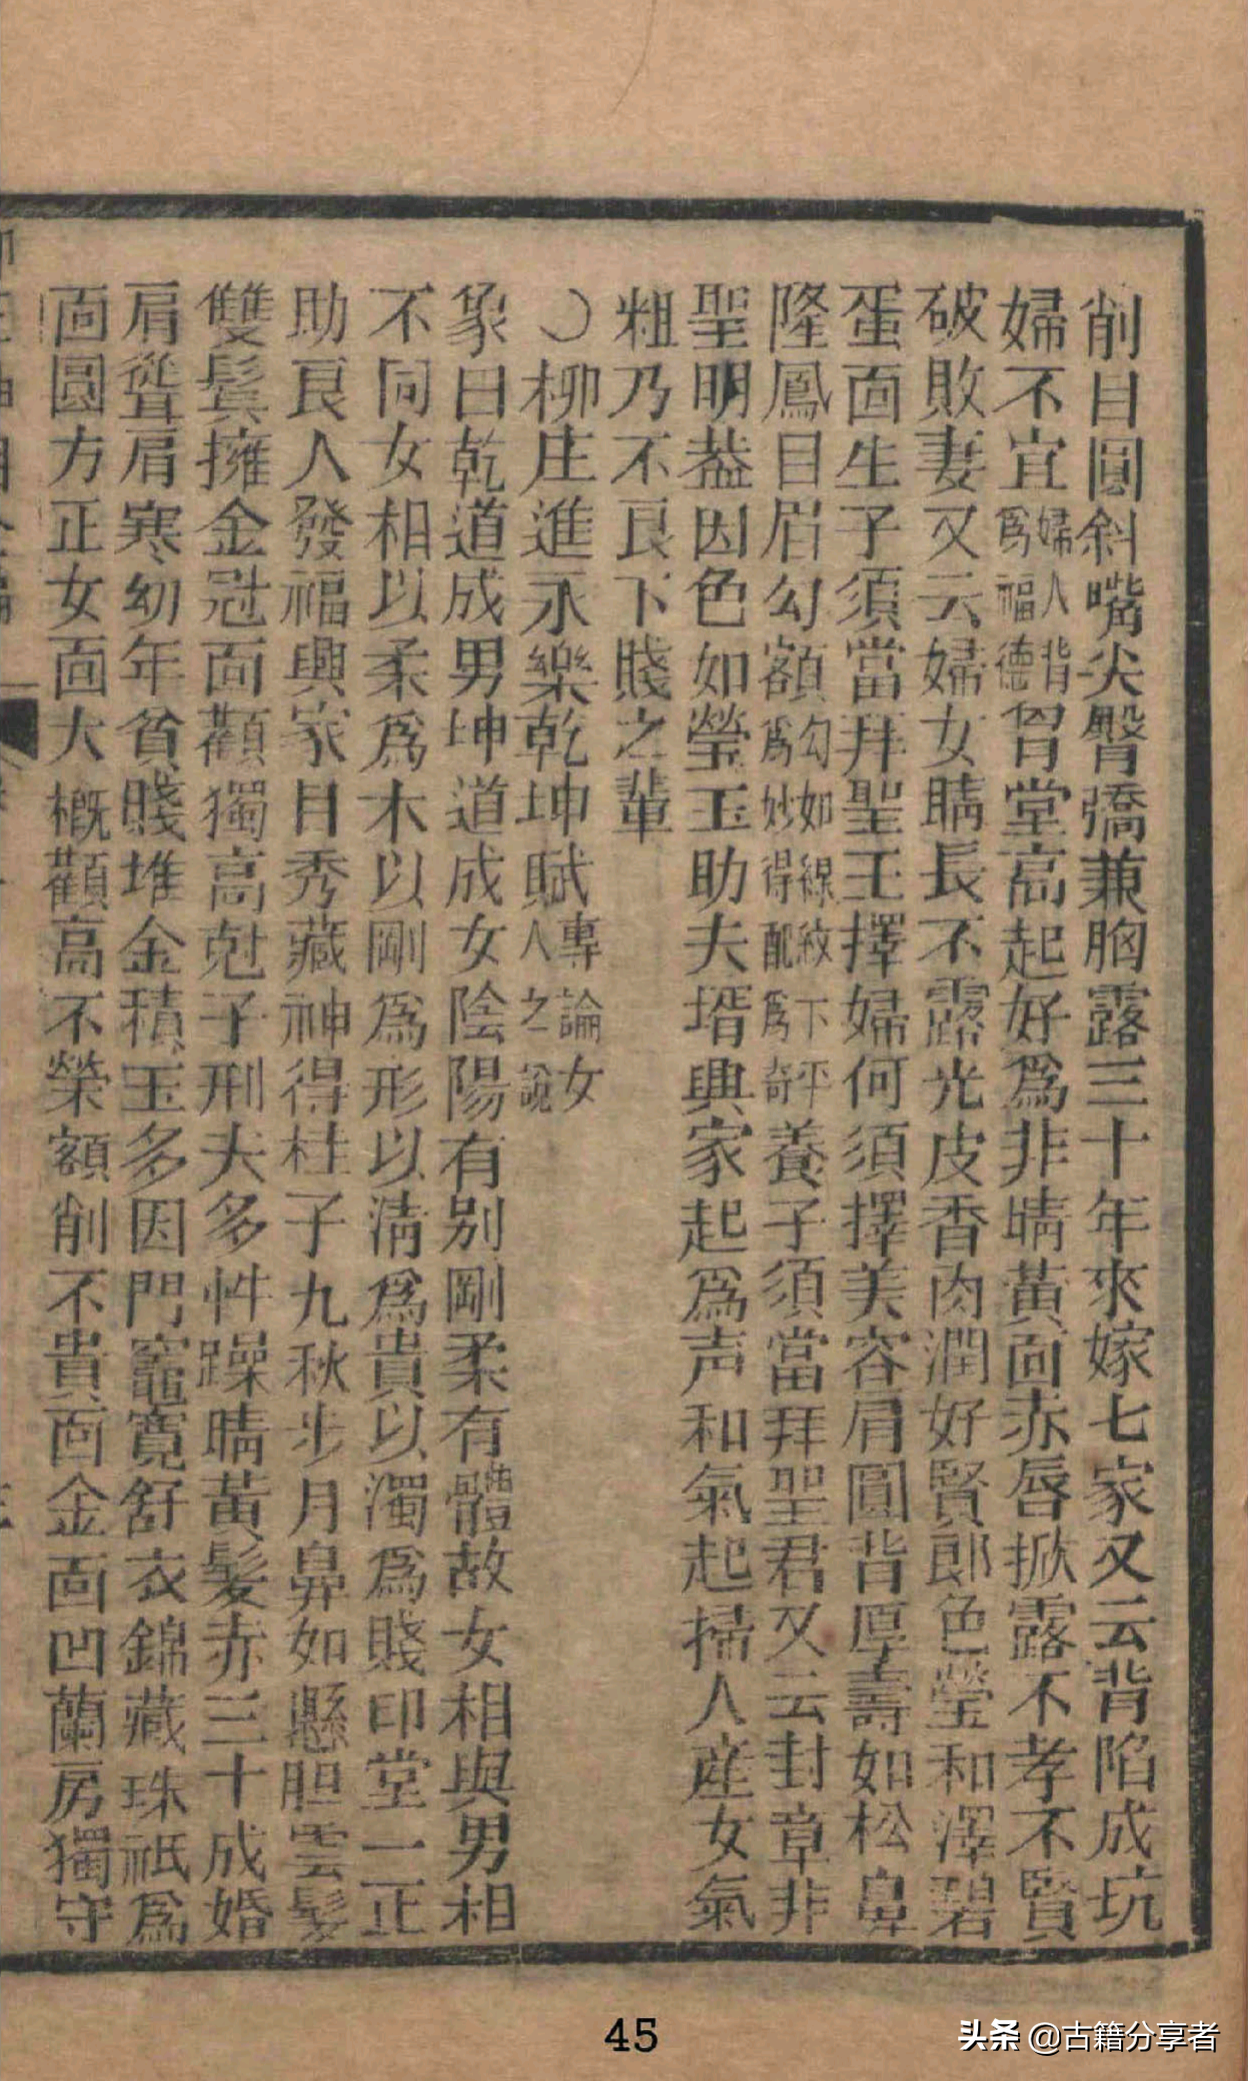 削目圓斜嘴尖臀喬兼胸露三十年來嫁七家又云背陷成坑
婦不宜婦人背為福德胃堂高起好為非睛黃面赤唇掀露不孝不賢
破敗妻又云婦女睛長不露光皮香肉潤好賢郎色瑩和澤碧
蛋面生子須當拜聖王擇婦何須擇美容肩圓背厚壽如松鼻
隆鳳目眉勾額勾如線紋下平為妙得配為奇養子須當拜聖君又云封章非
聖明葢因色如瑩玉助夫壻興家起為声和氣起掃人產女氣
粗乃不良下賤之輩
○柳庄進永樂乾坤賦專論女人之說
象曰乾道成男坤道成女陰陽有別剛柔有體故女相與男相
不同女相以柔為木以剛為形以淸為貴以濁為賤印堂一正
助良人發福興家目秀藏神得柱子九秋步月鼻如懸胆雲髮
雙鬂擁金冠面顴獨高尅子刑夫多性躁睛黃髮赤三十成婚
肩聳肩寒幼年貧賤堆金積玉多因門竈寬舒衣錦藏珠祗為
面圓方正女面大概顴高不榮額削不貴面金面凹蘭房獨守
45
头条 @古籍分享者